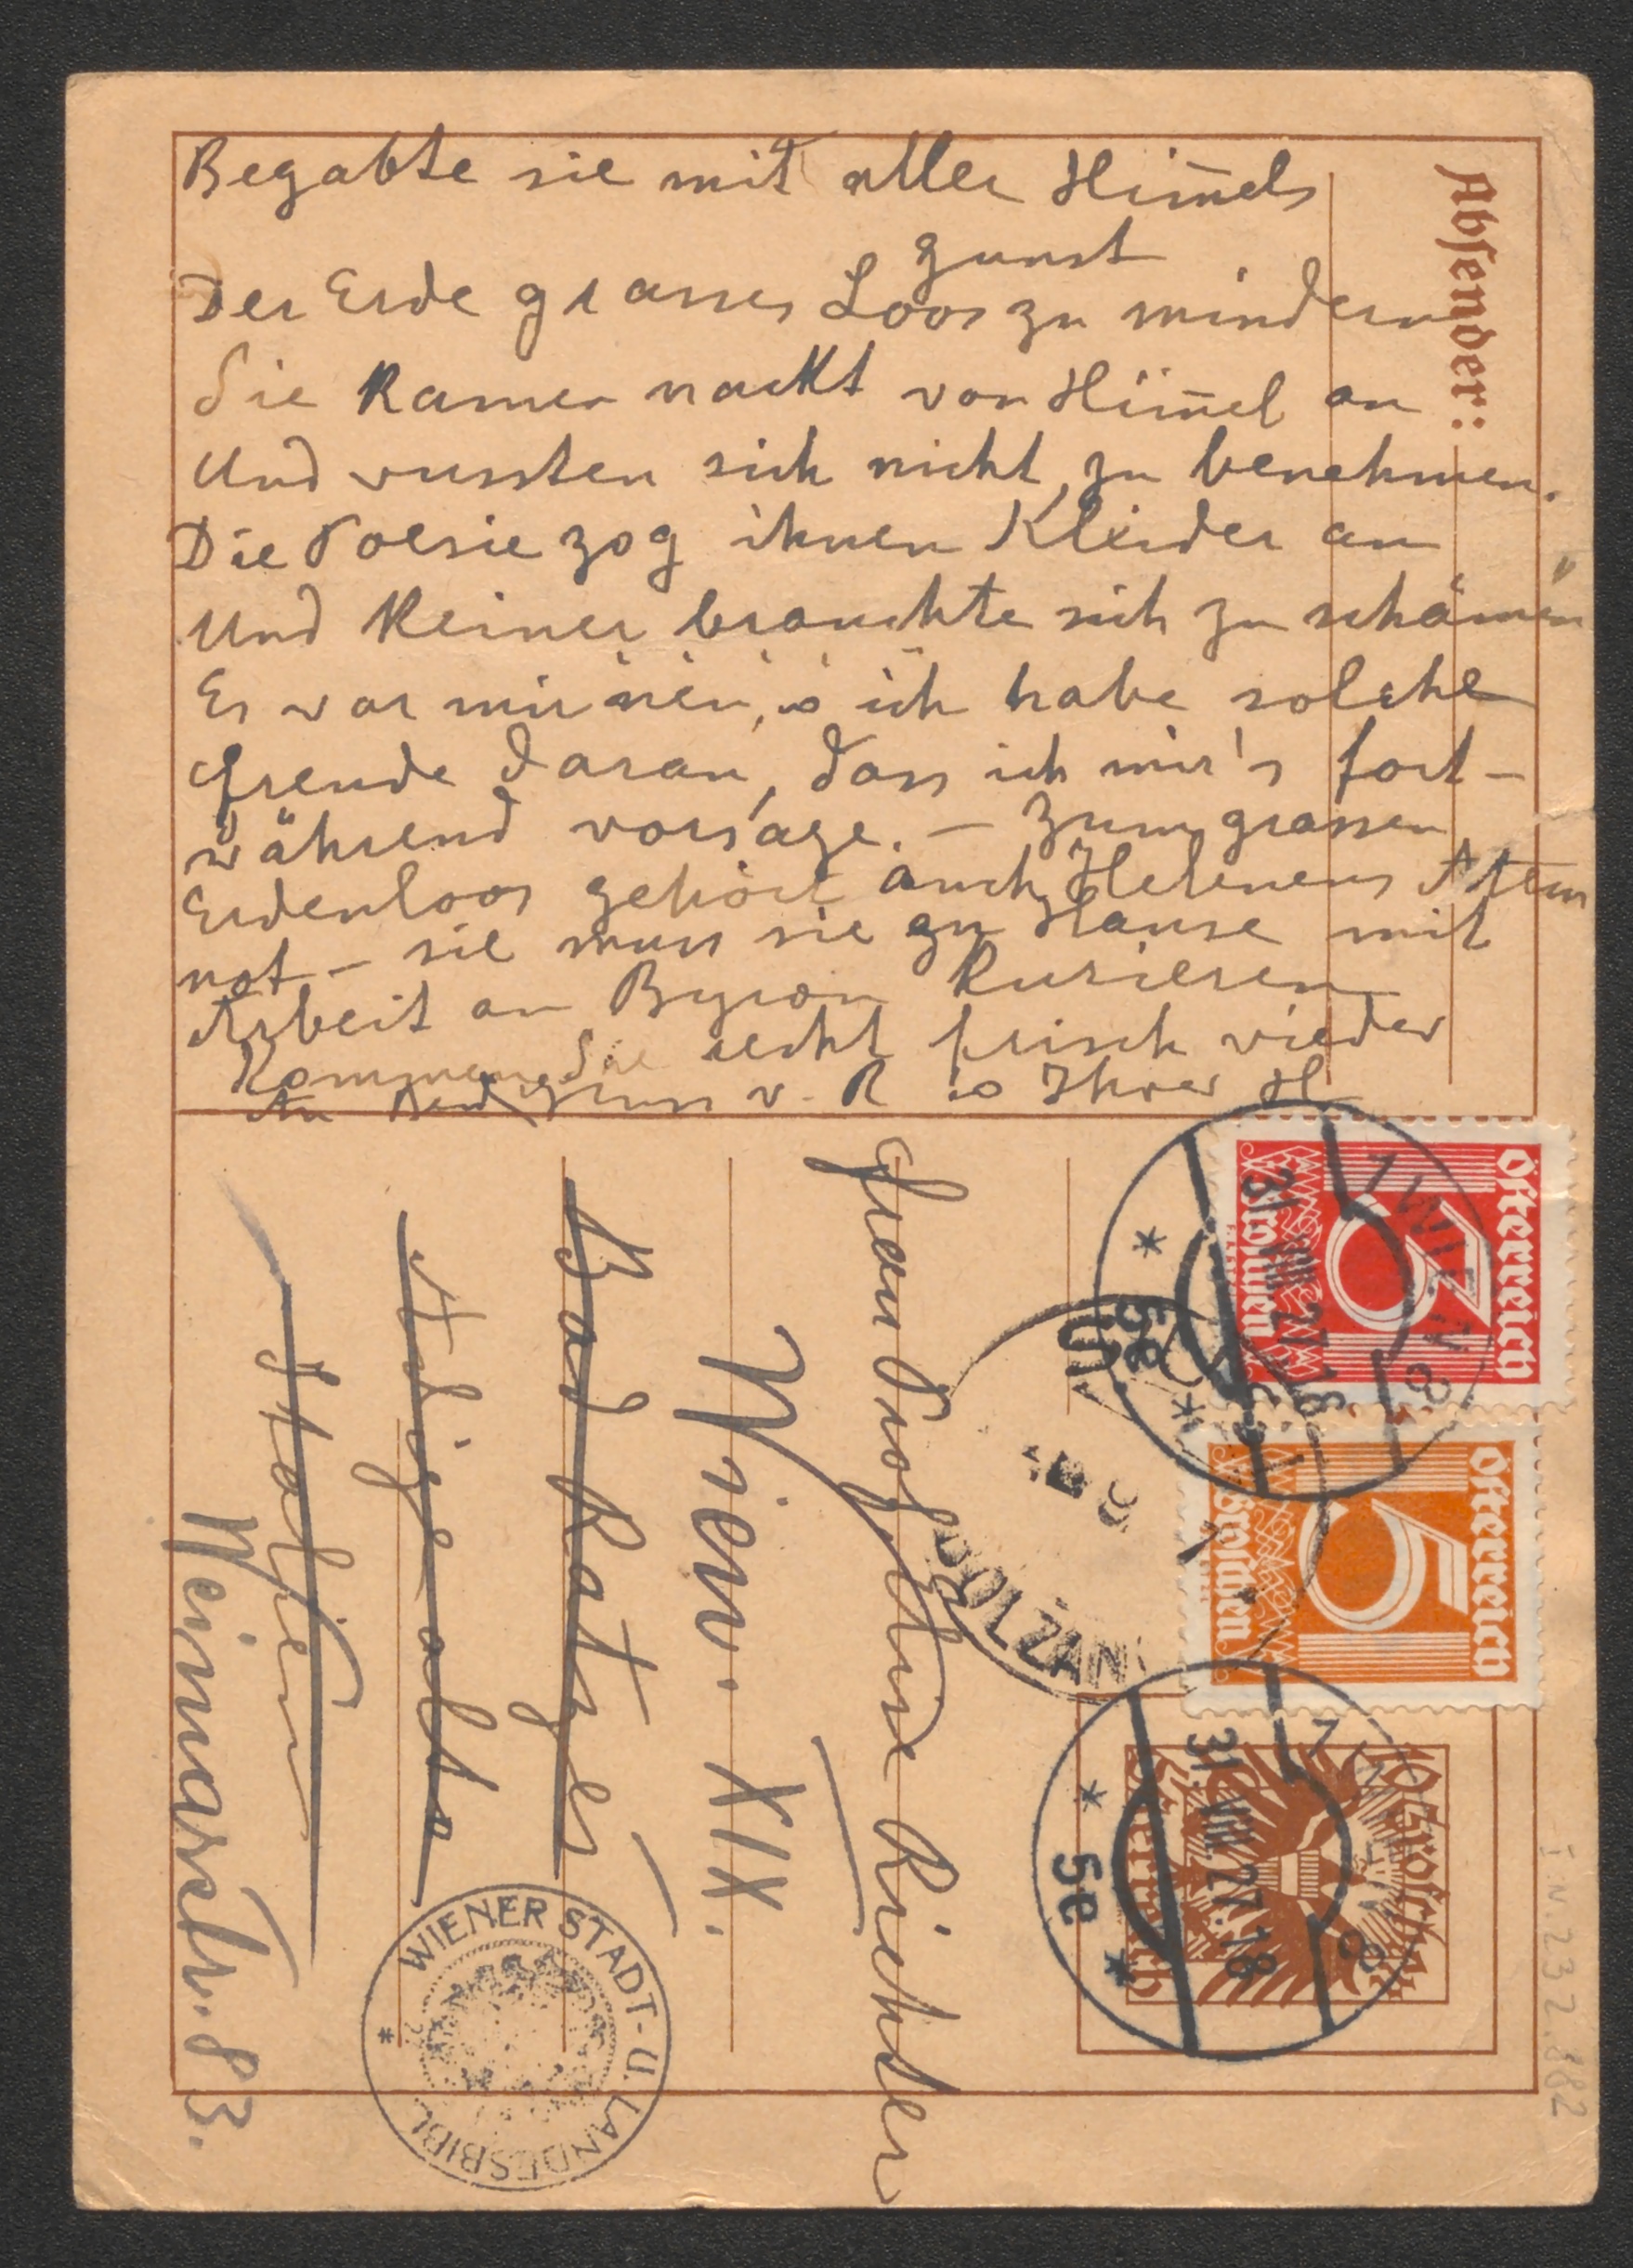 Absender:
Begabte sie mit aller Him̄els
gunst
Der Erde grasses Loos zu mindern
Sie kamen nackt von Him̄el an
Und wussten sich nicht zu benehmen.
Die Poesie zog ihnen Kleider an
Und keiner brauchte sich zu schämen
Es war mir neu, & ich habe solche
Freude daran, dass ich mir's fort-
während vorsage. – Zum grassen
Erdenloos gehört auch Helenens Atem
not – sie muss sie zu Hause mit
Arbeit an Byron kurieren
Kommen Sie recht frisch wieder
Gruss v. R & Ihrer H
Frau Prof. Elise Richter
Wien. XIX.
Bad Ratzes
Italien
Weimarstr. 83.
Österreich
3
Groschen
Österreich
5
Groschen
10 Groschen
Österreich
1 WIEN 8
31.VIII.27.18
* 5e *
1 WIEN 8
31.VIII.27.18
* 5e *
BOLZAN
WIENER STADT- U. LANDESBIBL.
I.N. 232.882